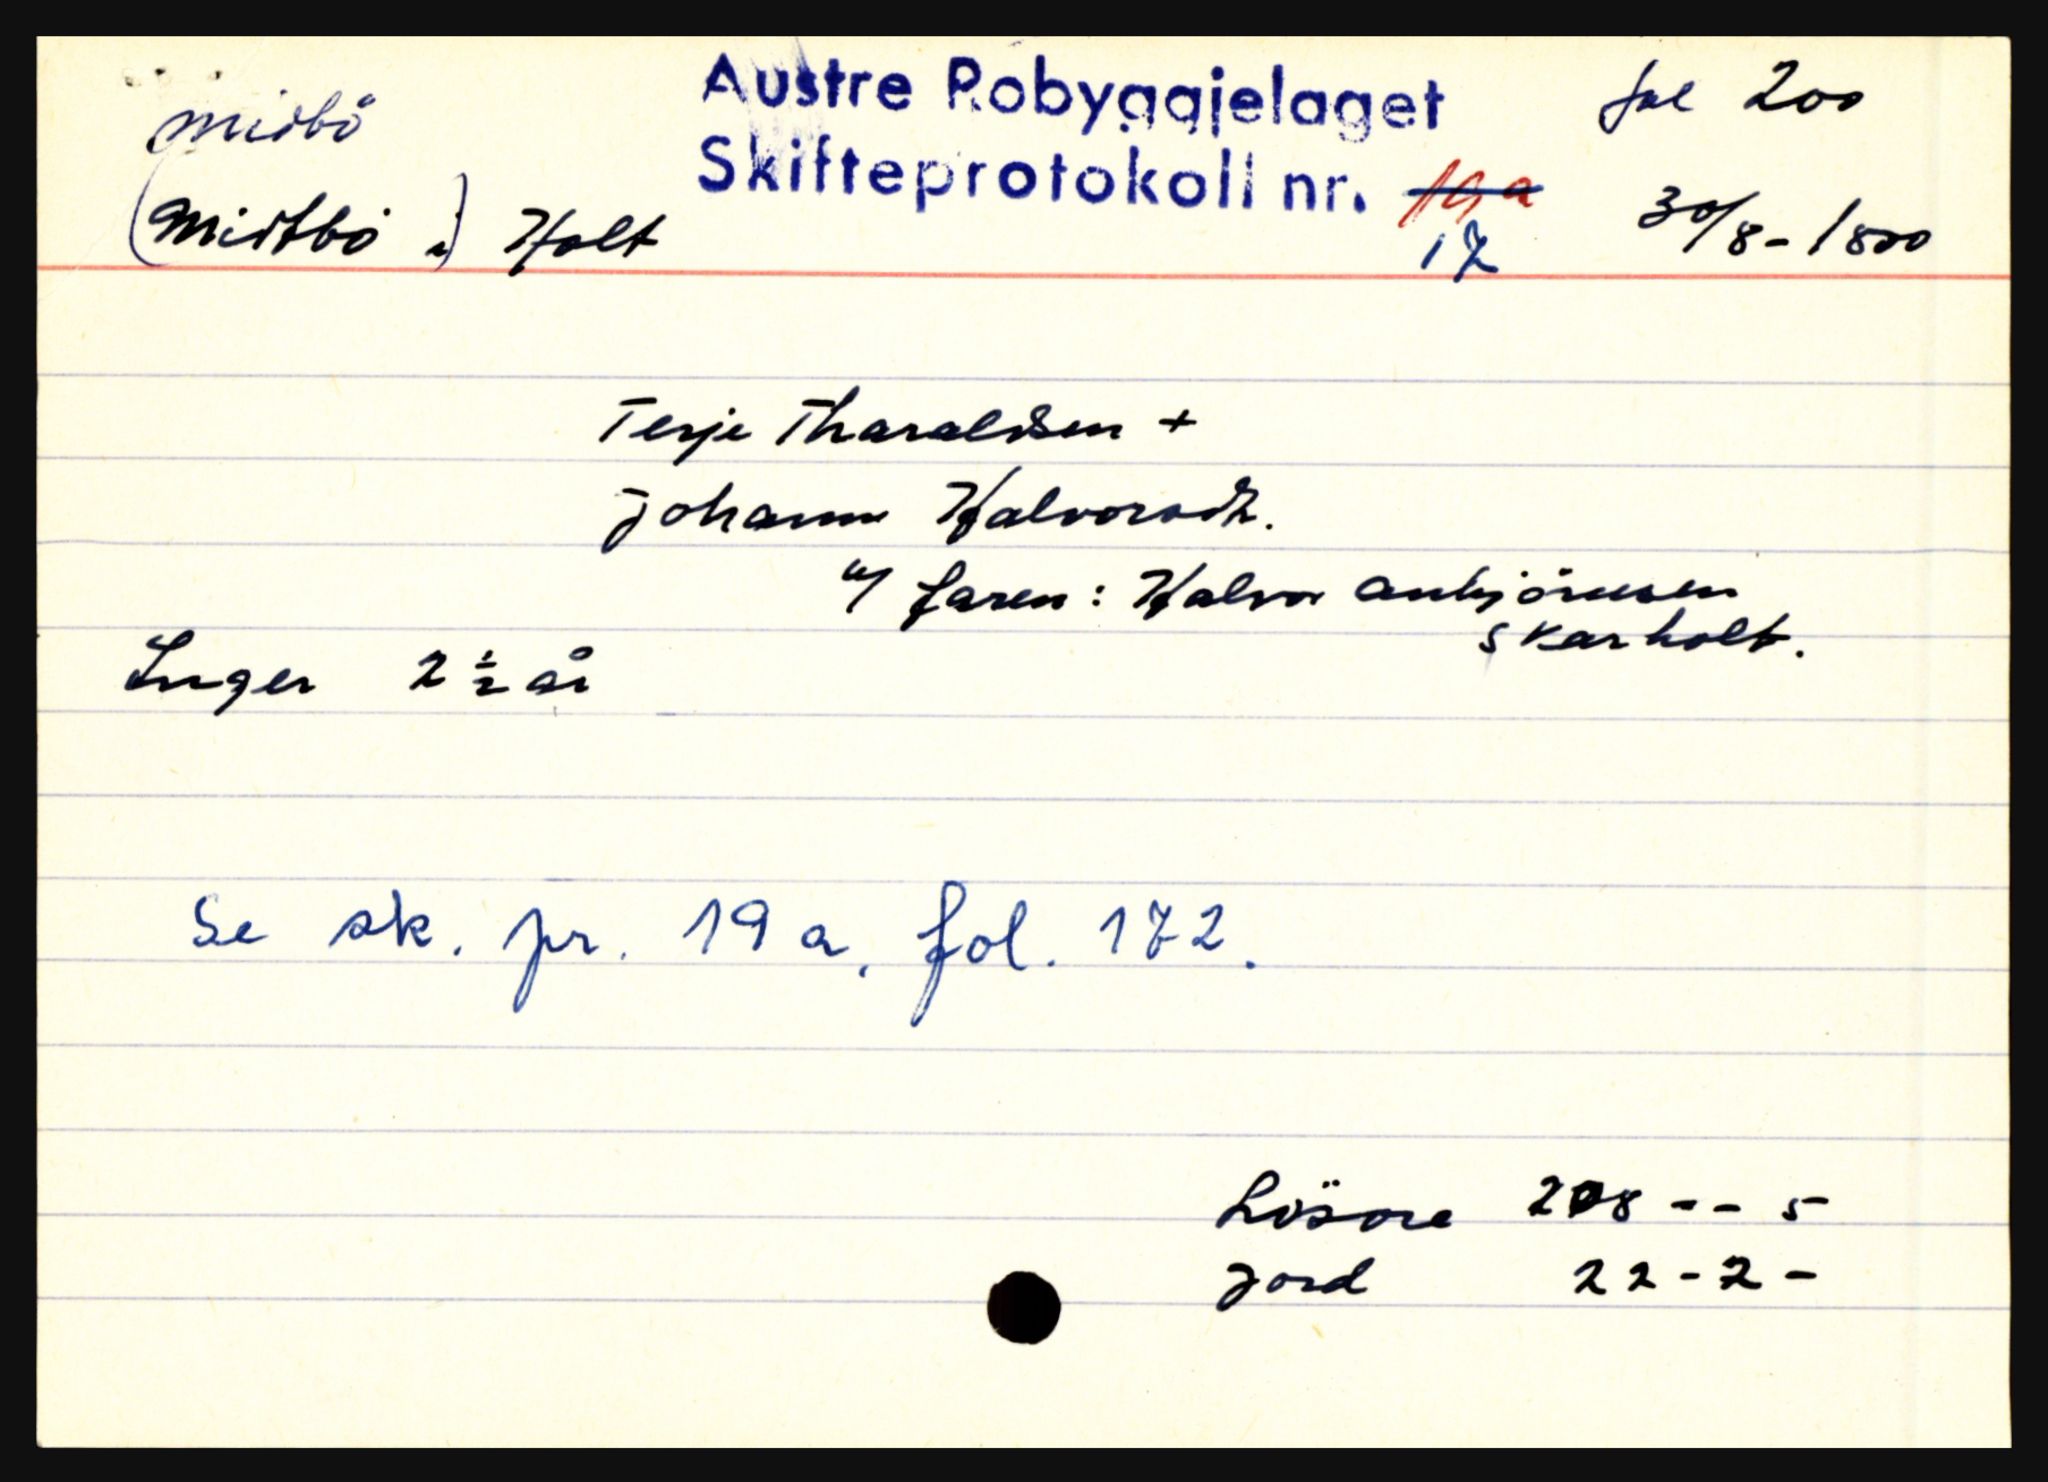 Midbö
Austre Robyggjelaget
fol 200
Skifteprotokoll nr. 19a
(Midtbö i) Holt
17
30/8-1800
Terje Tharaldsen +
Johanne Halvorsdtr.
m/ faren: Halvor Anbjörnsen
Skarholt.
Inger 2 1/2 år
Se sk. pr. 19 a, fol. 172.
Lösöre 208 - - 5
Jord 22 - 2 -